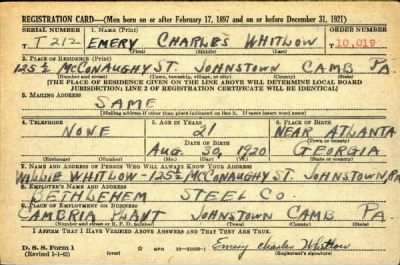 REGISTRATION CARD—(Men born on or after February 17, 1897 and on or before December 31, 1921)
SERIAL NUMBER 1. NAME (Print) ORDER NUMBER
T 212 EMERY CHARLES WHITLOW 10,019
(First) (Middle) (Last)
2. PLACE OF RESIDENCE (Print)
125½ MCCONAUGHY ST. JOHNSTOWN CAMB PA.
(Number and street) (Town, township, village, or city) (County) (State)
[THE PLACE OF RESIDENCE GIVEN ON THE LINE ABOVE WILL DETERMINE LOCAL BOARD
JURISDICTION; LINE 2 OF REGISTRATION CERTIFICATE WILL BE IDENTICAL]
3. MAILING ADDRESS
SAME
[Mailing address if other than place indicated on line 2. If same insert word same]
4. TELEPHONE 5. AGE IN YEARS 6. PLACE OF BIRTH
NONE 21 NEAR ATLANTA
DATE OF BIRTH (Town or county)
AUG 30, 1920 GEORGIA
(Exchange) (Number) (Mo.) (Day) (Yr.) (State or country)
7. NAME AND ADDRESS OF PERSON WHO WILL ALWAYS KNOW YOUR ADDRESS
WILLIE WHITLOW-125½ MCCONAUGHY ST. JOHNSTOWN, PA
8. EMPLOYER'S NAME AND ADDRESS
BETHLEHEM STEEL CO.
9. PLACE OF EMPLOYMENT OR BUSINESS
CAMBRIA PLANT JOHNSTOWN CAMB PA.
(Number and street or R. F. D. number) (Town) (County) (State)
I AFFIRM THAT I HAVE VERIFIED ABOVE ANSWERS AND THAT THEY ARE TRUE.
D. S. S. Form 1
(Revised 1-1-42) (over) GPO Emery Charles Whitlow
(Registrant's signature)